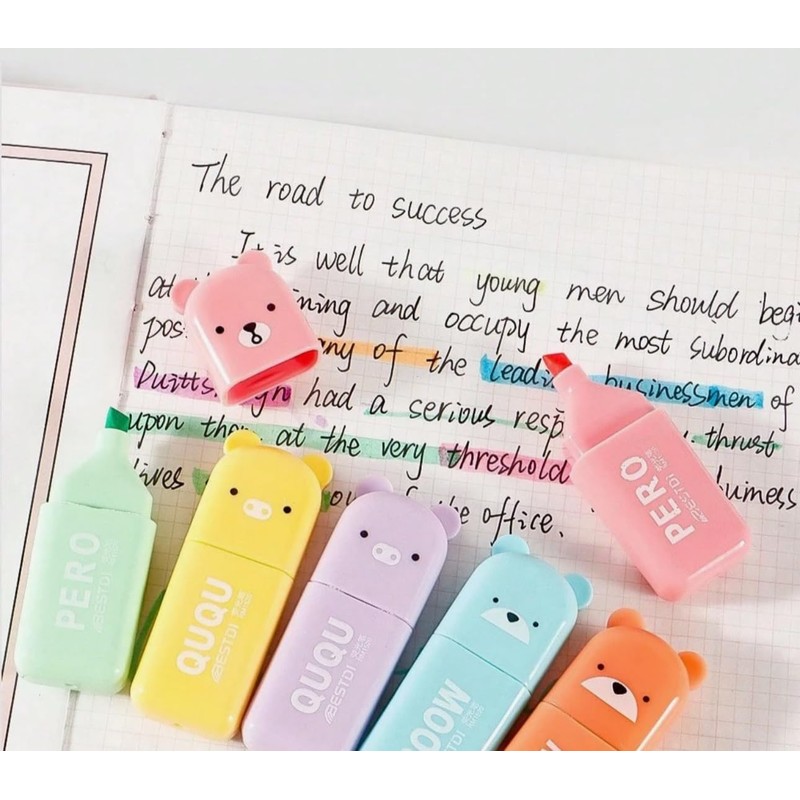 The road to success
It is well that young men should begi
at ining and occupy the most subordina
pos ny of the leadin businessmen of
Puitts gh had a serious resp thrust
upon them at the very threshold
lives ou f the office. buiness
PERO
BESTDI
QUQU
BESTDI
QUQU
BESTDI
OOOW
BESTDI
PERO
BESTDI